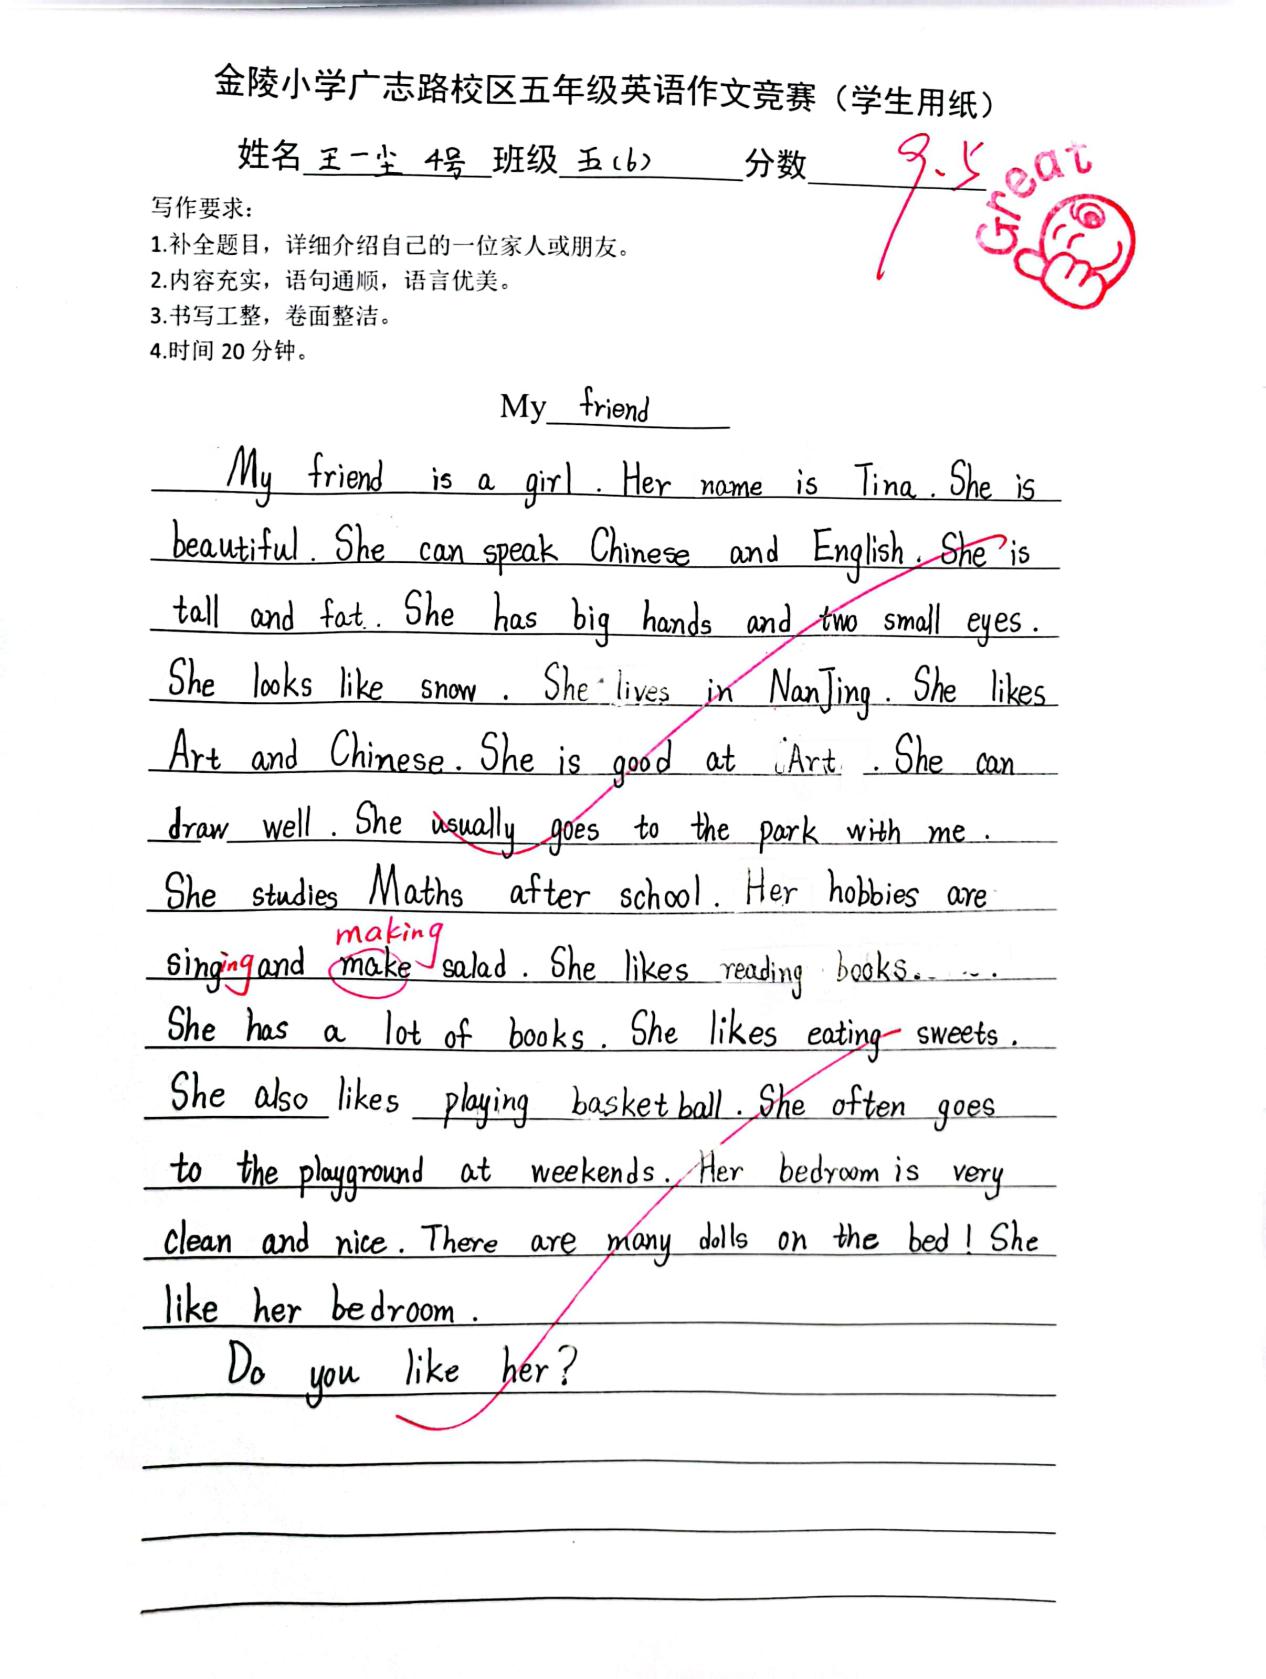 金陵小学广志路校区五年级英语作文竞赛（学生用纸）
姓名 王一尘 4号 班级 五(6) 分数 9.5
Great
写作要求：
1.补全题目，详细介绍自己的一位家人或朋友。
2.内容充实，语句通顺，语言优美。
3.书写工整，卷面整洁。
4.时间 20 分钟。
My friend
My friend is a girl. Her name is Tina. She is
beautiful. She can speak Chinese and English. She is
tall and fat. She has big hands and two small eyes.
She looks like snow. She lives in NanJing. She likes
Art and Chinese. She is good at Art. She can
draw well. She usually goes to the park with me.
She studies Maths after school. Her hobbies are
making
singing and make salad. She likes reading books.
She has a lot of books. She likes eating sweets.
She also likes playing basketball. She often goes
to the playground at weekends. Her bedroom is very
clean and nice. There are many dolls on the bed! She
like her bedroom.
Do you like her?